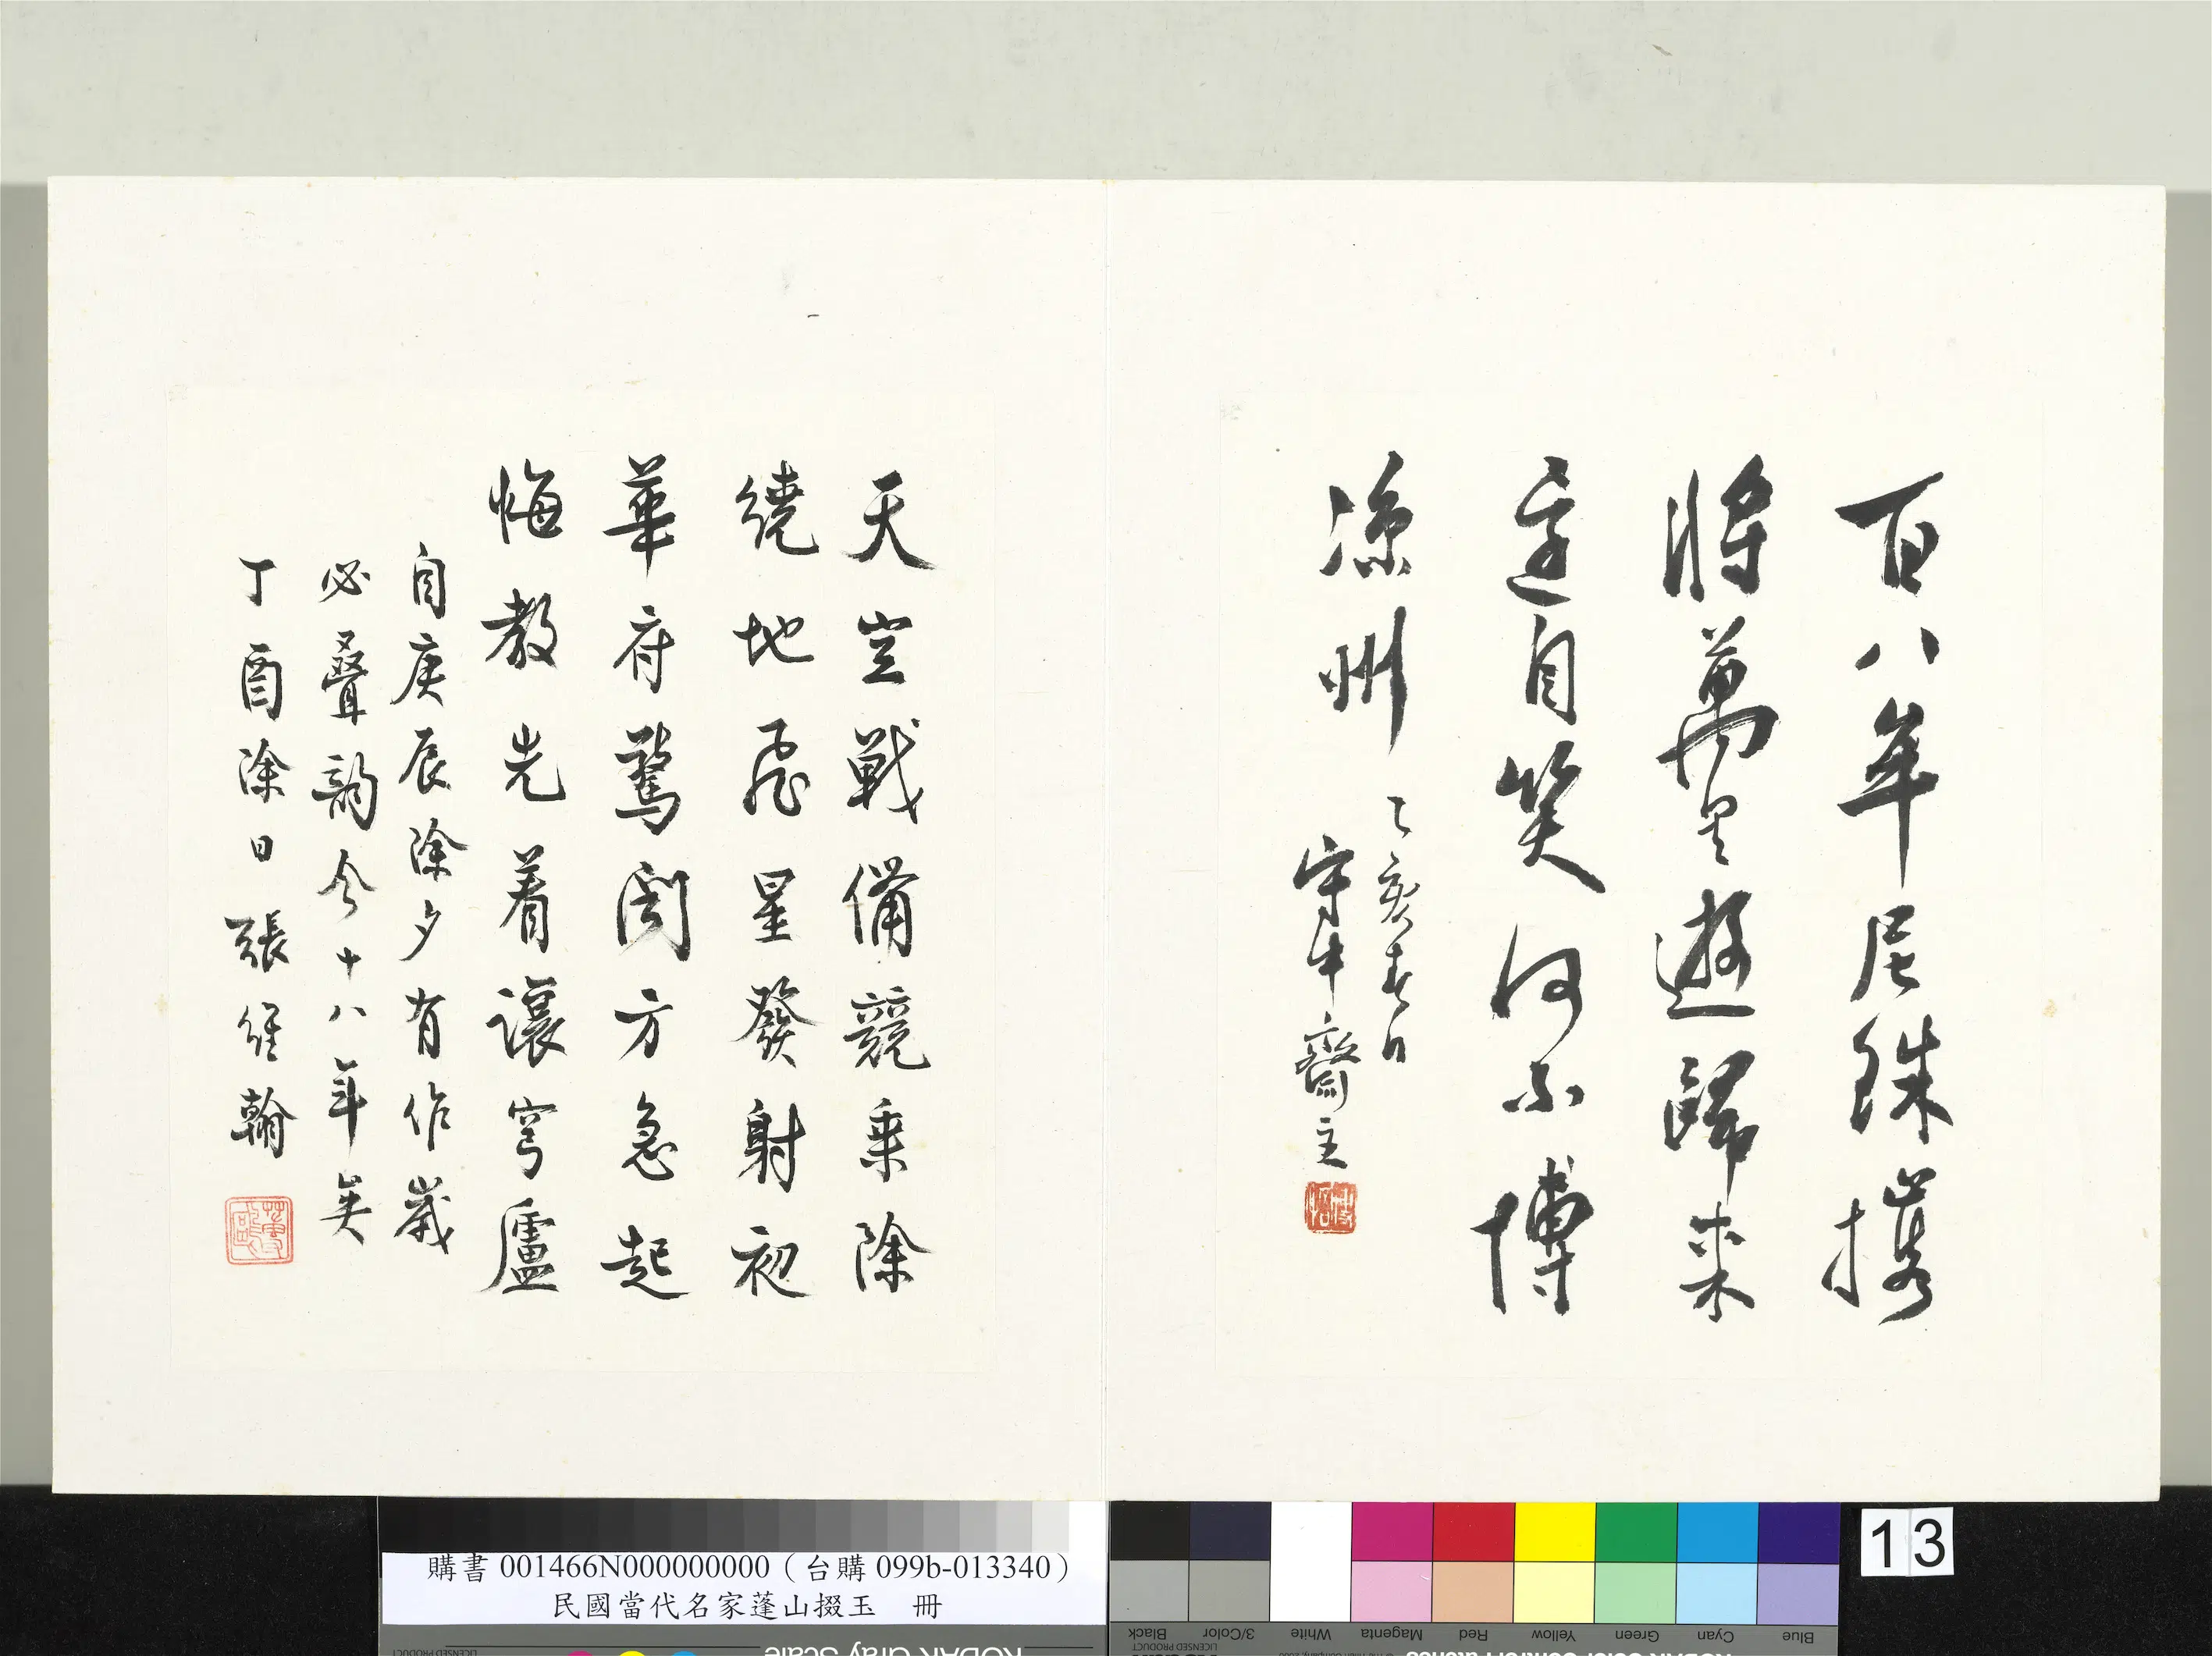 百八年尼珠攜
將萬里遊歸來
還自笑何不博
涼州
乙亥春日
牢牛齋主
天空戰備競乘除
繞地飛星發射初
華府驚聞方急起
悔教先着讓穹廬
自庚辰除夕有作歲
必疊韵今十八年矣
丁酉除日張維翰
購書 001466N000000000（台購 099b-013340）
民國當代名家蓬山掇玉 冊
13
Black
3/Color
White
Magenta
Red
Yellow
Green
Cyan
Blue
LICENSED PRODUCT
KODAK Gray Scale
LICENSED PRODUCT